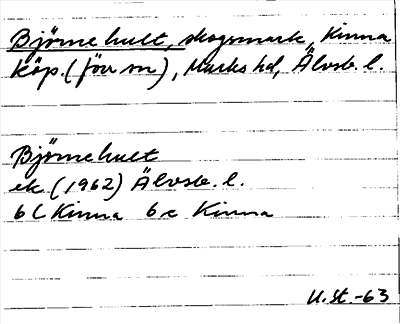 Björnehult, skogsmark, Kinna
köp. (förr sn), Marks hd, Älvsb. l.
Björnehult
ek (1962) Älvsb. l.
6c Kinna 6c Kinna
U.St.-63